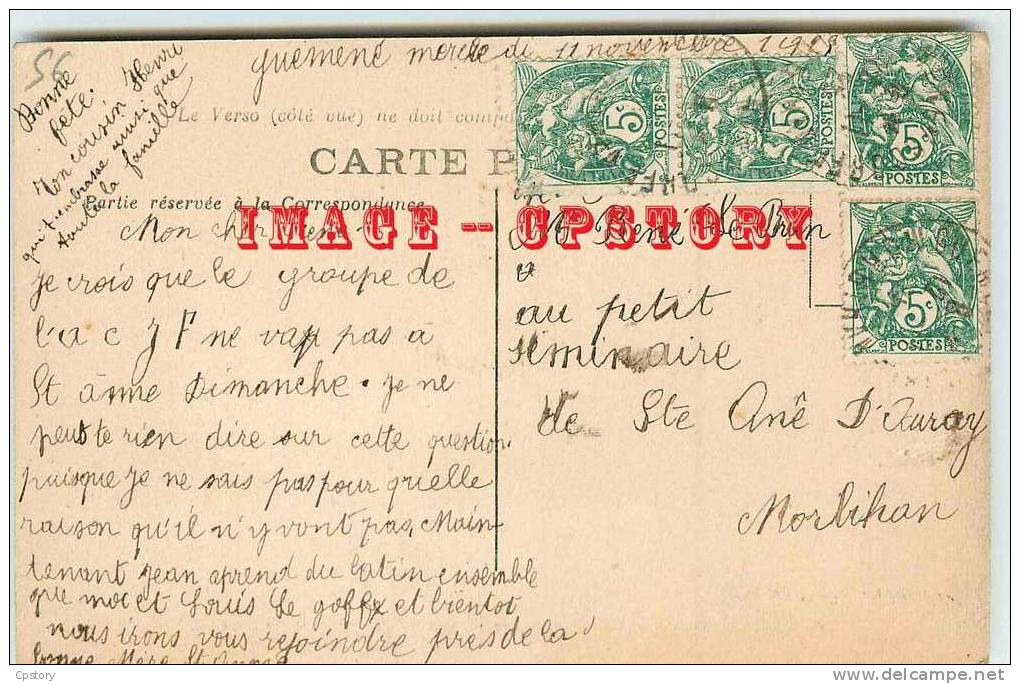 56
guémené mercredi 11 novembre 19
Bonne
fête.
Ton cousin Henri
qui t'embrasse ainsi que
toute la famille
Le Verso (côté vue) ne doit
CARTE P
Partie réservée à la Correspondance
IMAGE -- CPSTORY
5c POSTES
5c POSTES
5c POSTES
5c POSTES
Mon cher René
Je crois que le groupe de
l'a c J F ne va pas à
St ânne Dimanche. Je ne
peut te rien dire sur cette question.
puisque Je ne sais pas pour quelle
raison qu'il n'y vont pas, Main-
tenant Jean aprend du latin ensemble
que moi et Louis Le goff et bientot
nous irons vous rejoindre près de la
bonne Mère St
M René Le
au petit
séminaire
de Ste Ane D'Auray
Morbihan
Cpstory
www.delcampe.net